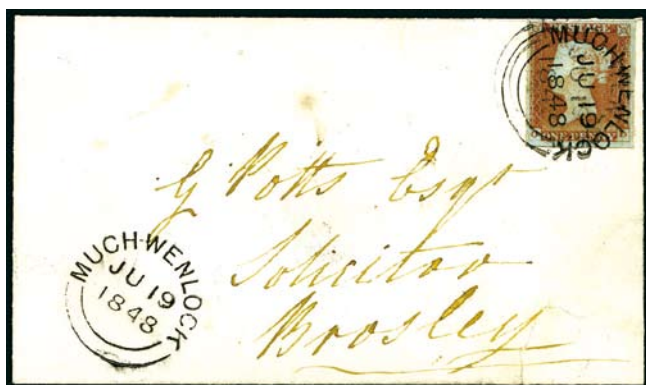 MUCH-WENLOCK
JU 19
1848
G Potts Esqr
Solicitor
Brosley
MUCH-WENLOCK
JU 19
1848